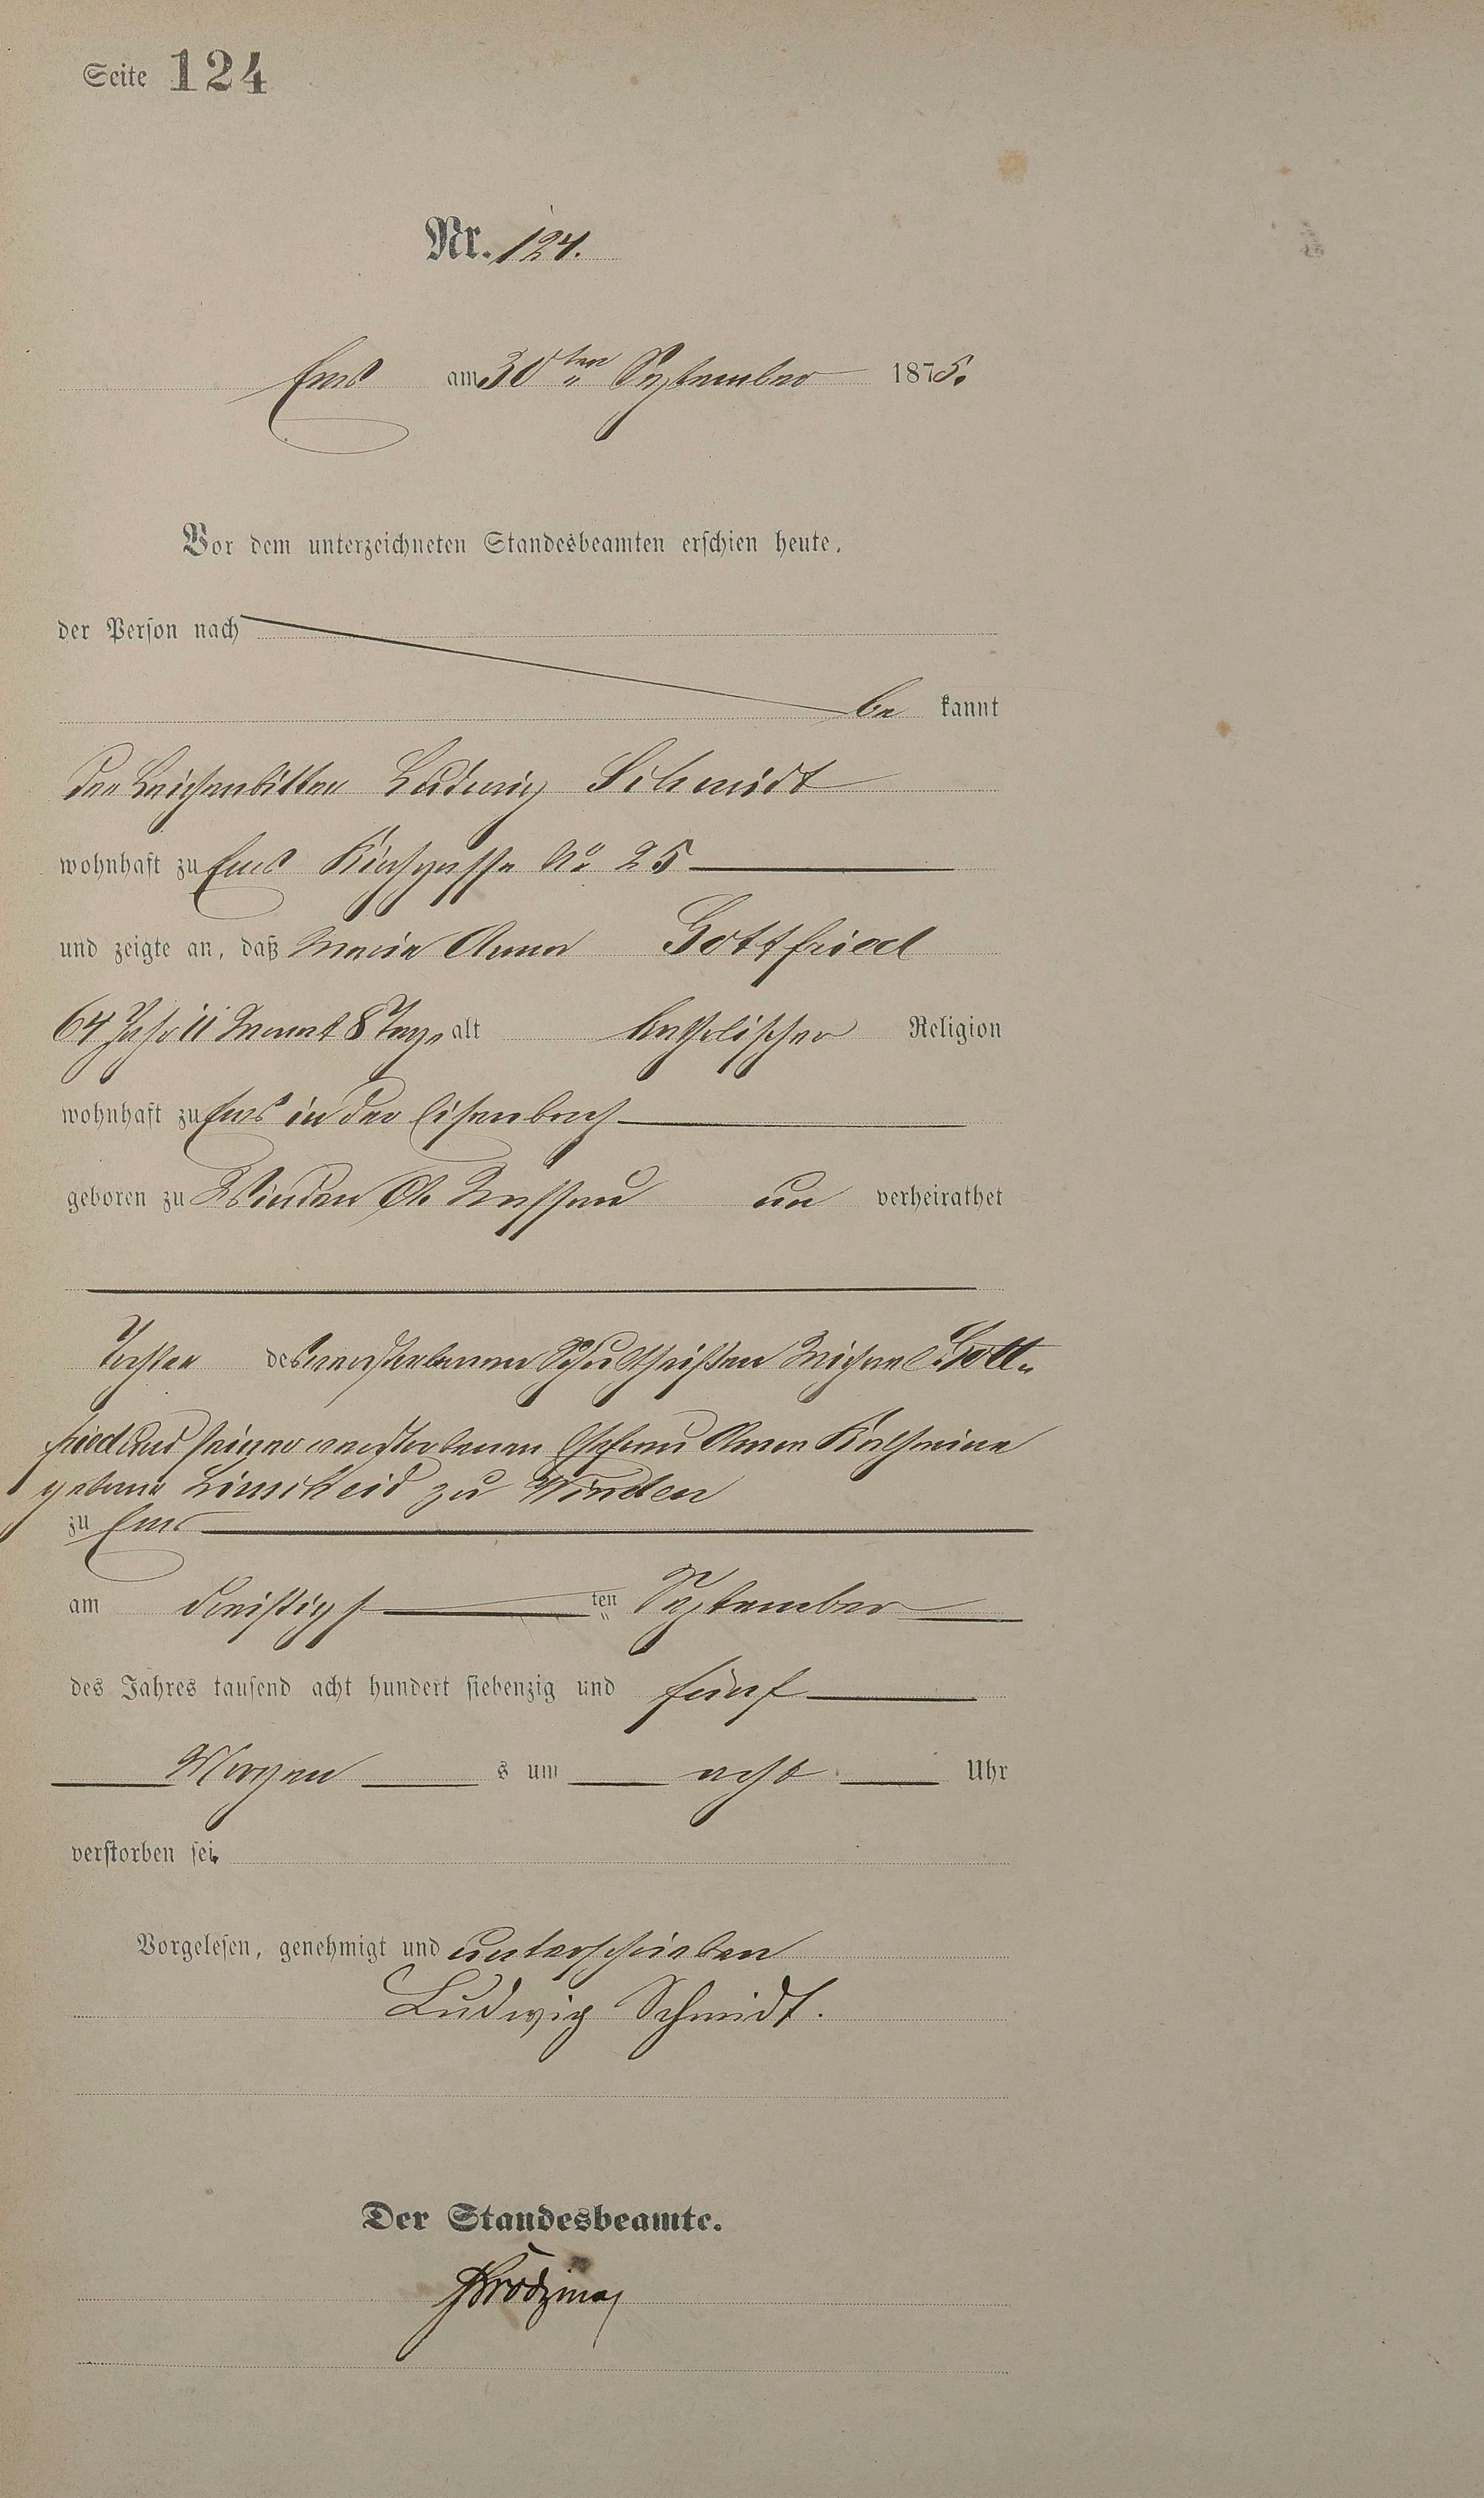 Seite 124
Nr. 124.
Ems am 30ten September 1875.
Vor dem unterzeichneten Standesbeamten erschien heute,
der Person nach
be kannt
der Leichenbitter Ludwig Schmidt
wohnhaft zu Ems Kirchgasse No 25
und zeigte an, daß Maria Anna Gottfried
64 Jahr 11 Monat 8 Tage alt katholischer Religion
wohnhaft zu Ems in der Eisenbach
geboren zu Winden A. Nassau un verheirathet
Tochter des verstorbenen Schultheißen Michael Gott-
fried und seiner verstorbenen Ehefrau Anna Katharina
geborne Linscheid zu Winden
zu Ems
am dreißigst ten September
des Jahres tausend acht hundert siebenzig und fünf
Morgen s um acht Uhr
verstorben sei.
Vorgelesen, genehmigt und unterschrieben
Ludwig Schmidt.
Der Standesbeamte.